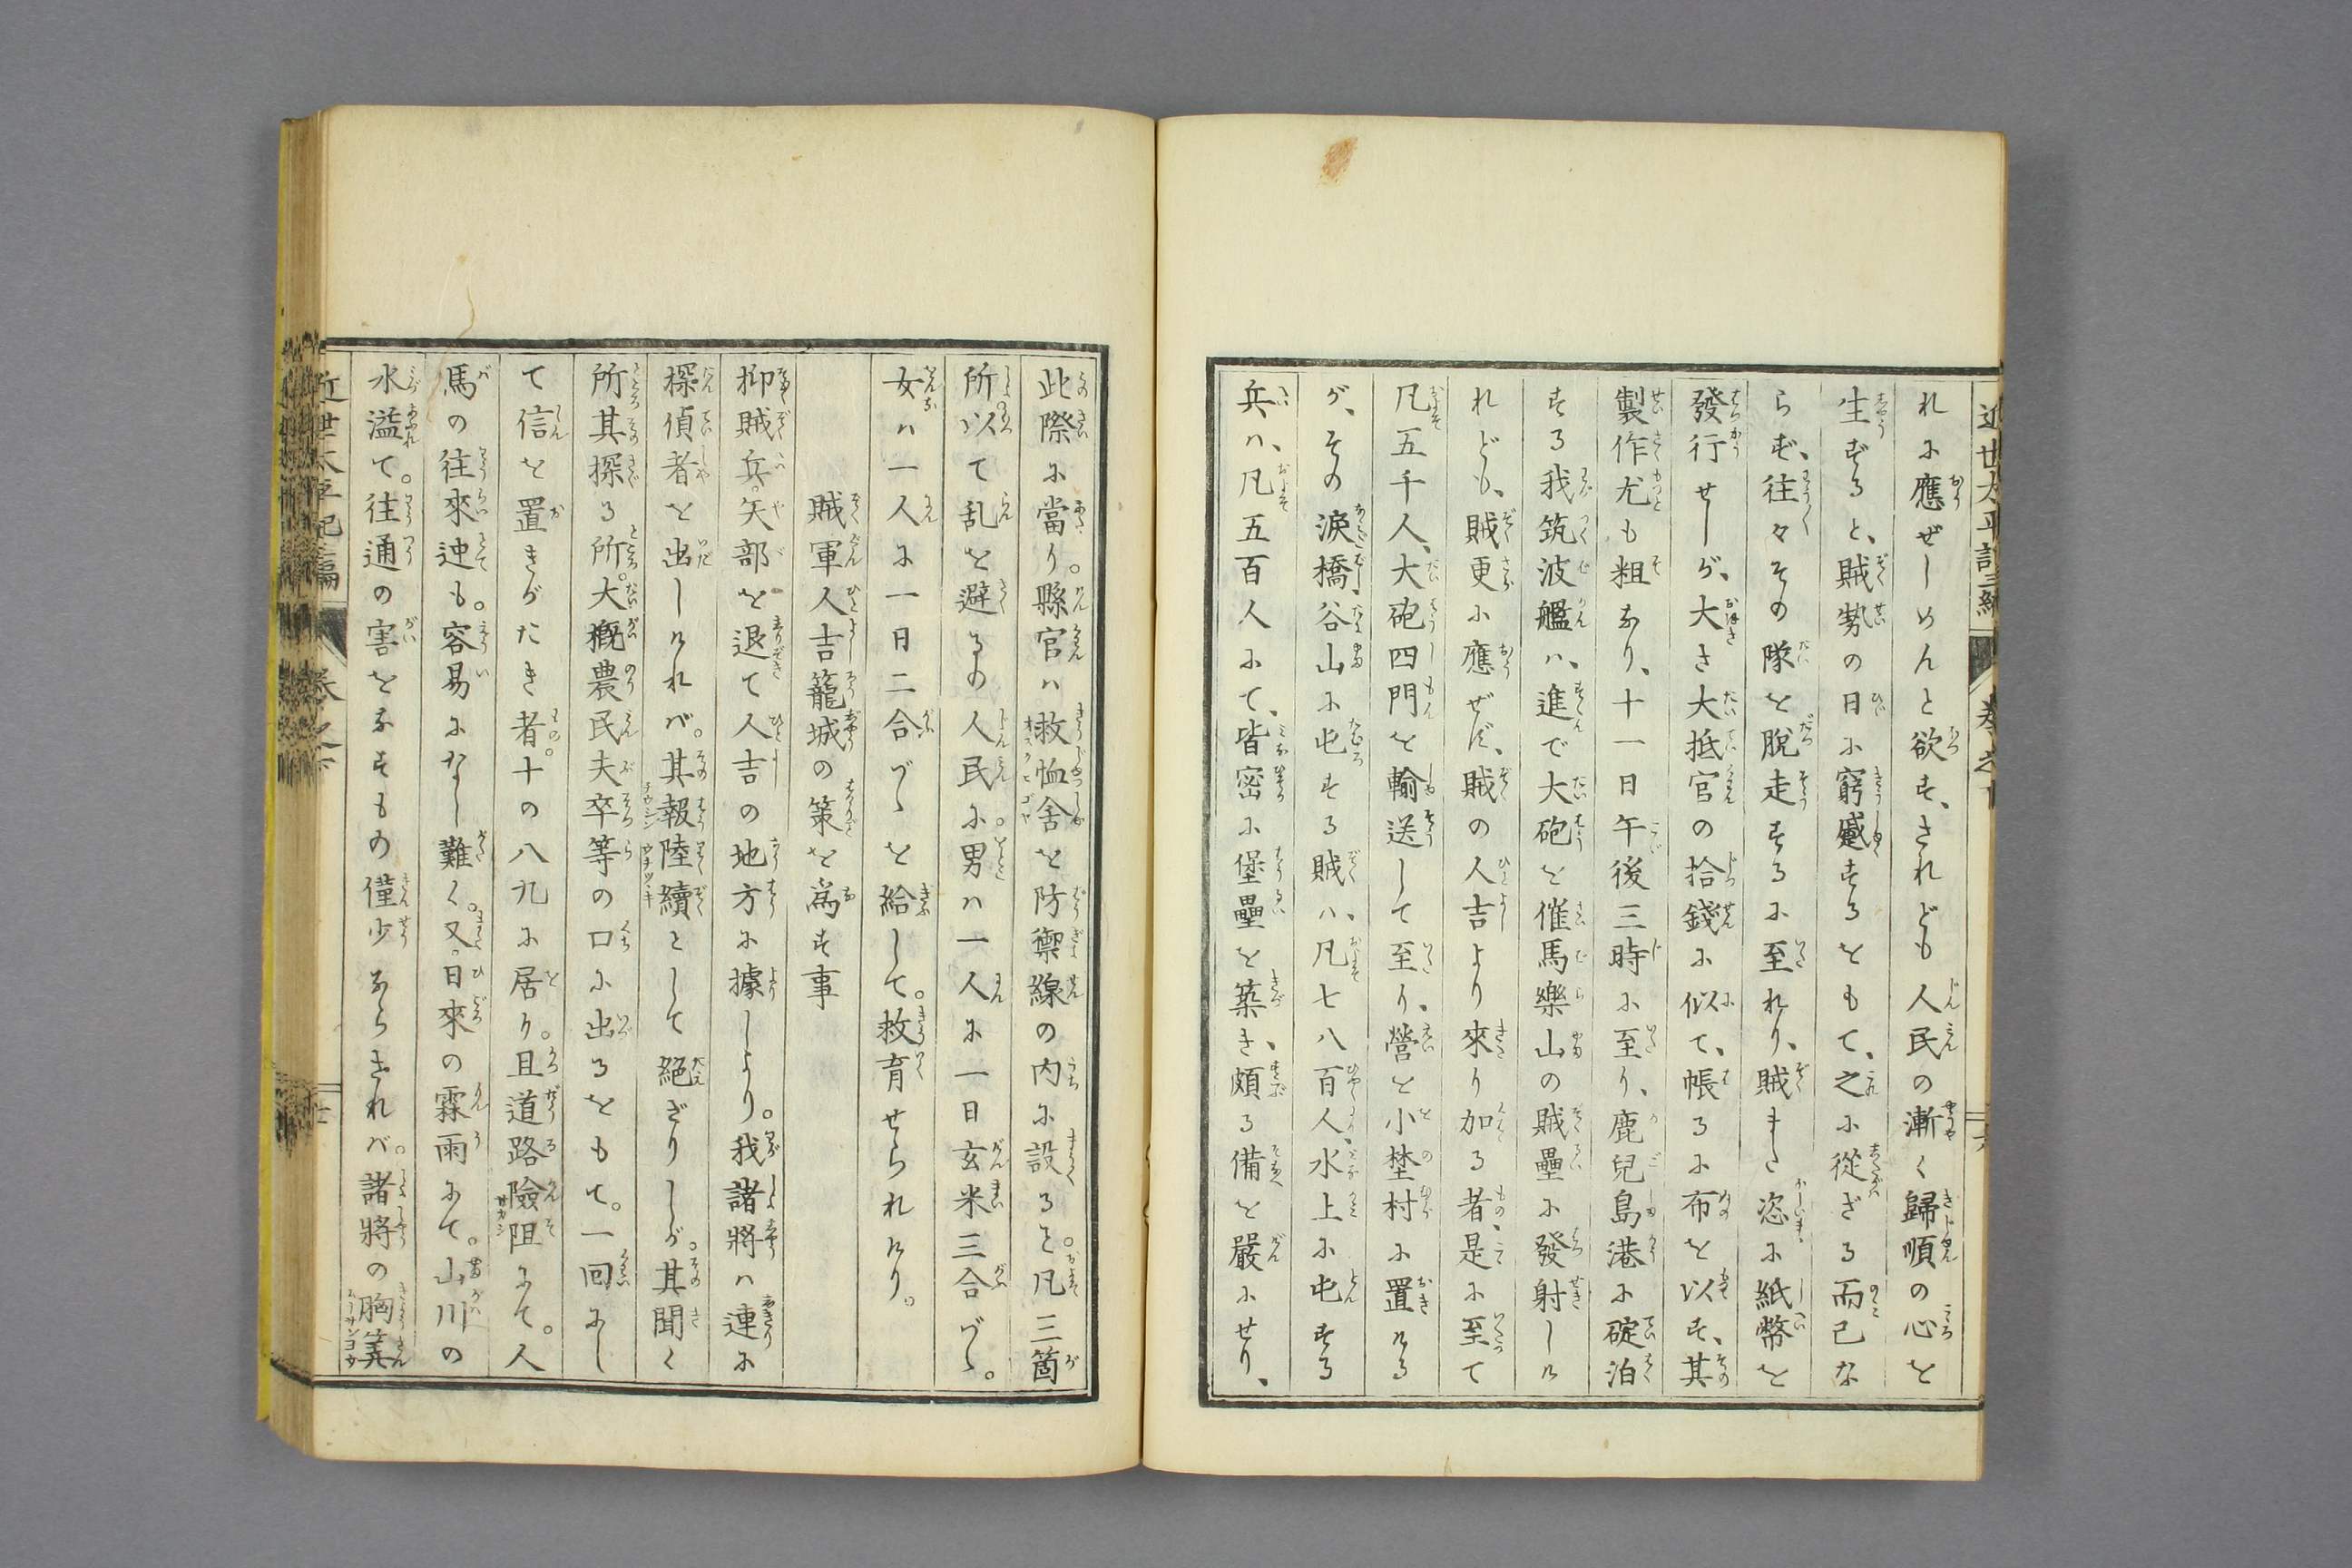 近世太平記三編 卷之十
れに應ぜしめんと欲す、されども人民の漸く歸順の心を
生ずると、賊勢の日に窮蹙するをもて、之に從ざる而已な
らず、往々その隊を脱走するに至れり、賊また恣に紙幣を
發行せしが、大きさ大抵官の拾錢に似て、帳るに布を以す、其
製作尤も粗なり、十一日午後三時に至り、鹿兒島港に碇泊
する我筑波艦ハ、進で大砲を催馬樂山の賊壘に發射しけ
れども、賊更に應ぜず、賊の人吉より來り加る者、是に至て
凡五千人、大砲四門を輸送して至り、營を小埜村に置ける
が、その淚橋、谷山に屯する賊ハ、凡七八百人、水上に屯する
兵ハ、凡五百人にて、皆密に堡壘を築き、頗る備を嚴にせり、
此際に當り。縣官ハ救恤舍を防禦線の内に設ること。凡三箇
所以て乱を避るの人民に。男ハ一人に一日玄米三合づゝ。
女ハ一人に一日二合づゝを給して。救育せられけり。
賊軍人吉籠城の策を爲す事
抑賊兵。矢部を退て人吉の地方に據しより。我諸將ハ連に
探偵者を出しければ。其報陸續として絕ざりしが。其聞く
所其探る所。大概農民夫卒等の口に出るをもて。一回にし
て信を置きがたき者。十の八九に居り。且道路險阻にて。人
馬の往來迚も。容易になし難く。又。日來の霖雨にて。山川の
水溢て。往通の害をなすもの僅少ならざれば。諸將の胸算
近世太平記三編 卷之十